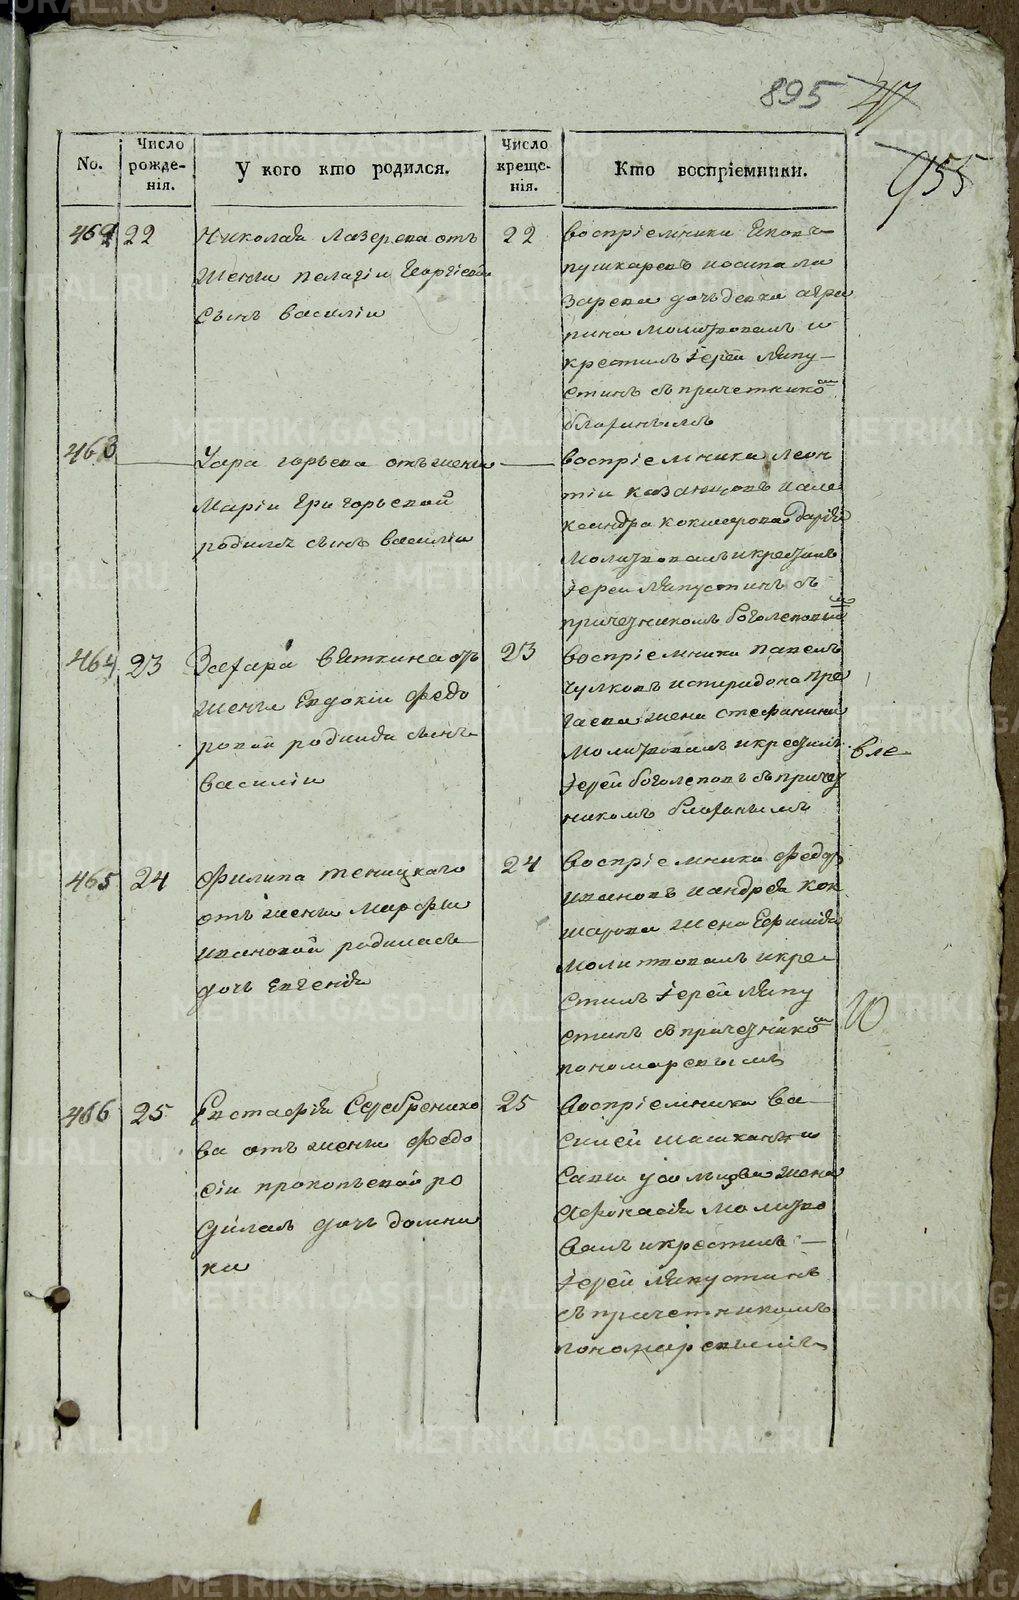 895 217
955
No.
Число рожде- нія.
У кого кто родился.
Число креще- нія.
Кто воспріемники.
462 22
Николая Лазерева отъ
жены пелагіи Георгіевой
сынъ василіи
22
воспріемники Яковъ
пушкаревъ иосипа ла
зарева дочь девка агри
пина молитвовалъ и
крестилъ Іерей Ляпу-
стинъ съ причетнико
463
Уара горьева отъ жены
Маріи Григорьевой
родилъ сынъ василіи
воспріемники леон
тіи казанцовъ иале
ксандра кокшарова Дарія
молитвовалъ и крестилъ
Іереи Ляпустинъ съ
причетникомъ боголеповы
464 23
вяткина отъ
жены Евдокіи Федо
ровой родился сынъ
василіи
23
воспріемники павелъ
Чулковъ испиридона пре
гаева жена стефанида
молитвовалъ и крестилъ
Іерей боголеповъ съ причет
никомъ
вле
465 24
Филипа теницкаго
отъ жены Марфы
ивановой родилась
дочь Евгенія
24
воспріемники Федоръ
ивановъ иандрея кок
шарова жена Ефимія
молитвовалъ икре-
стилъ Іерей Ляпу
стинъ съ причетнико
пономаревымъ
Ю
466 25
Евстафія Серебренико
ва отъ жены Федо
сіи прокопьевой ро
дилась дочь домни
ки
25
Воспріемники ва
силей
Савы жена
Афонасія молитво
валъ и крестилъ
Іерей Ляпустинъ
съ причетникомъ
пономаревымъ
METRIKI.GASO-URAL.RU